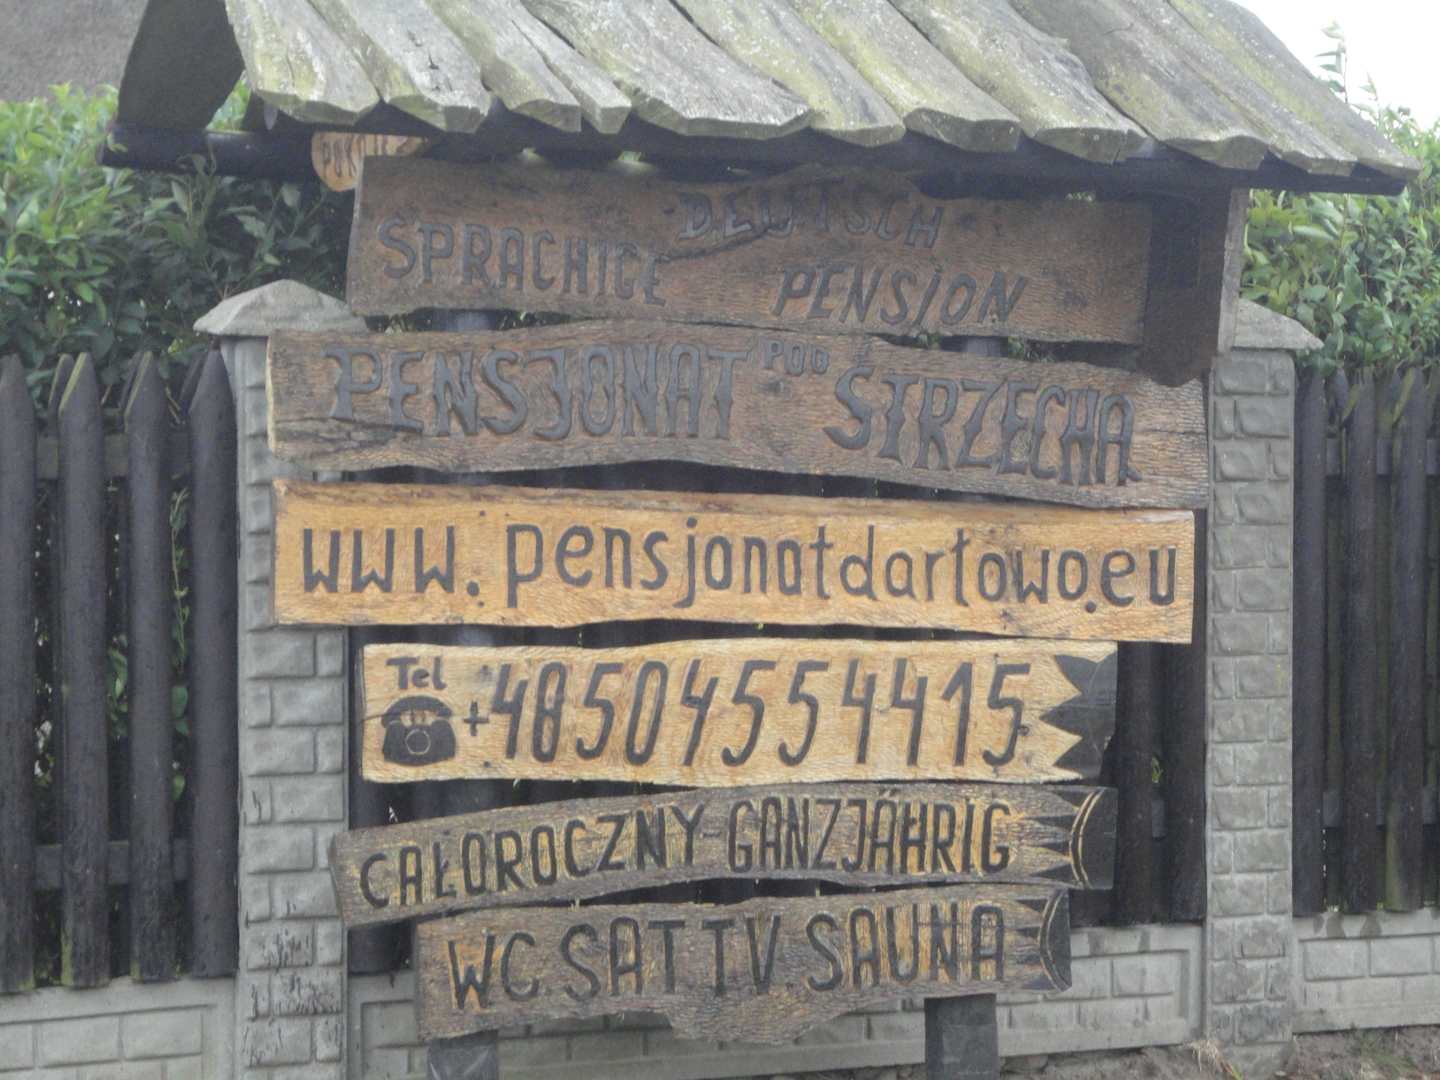 POKOJE
DEUTSCH
SPRACHIGE PENSION
PENSJONAT POD STRZECHĄ
www.pensjonatdarłowo.eu
Tel +48504554415
CAŁOROCZNY-GANZJÄHRIG
WC. SAT TV. SAUNA